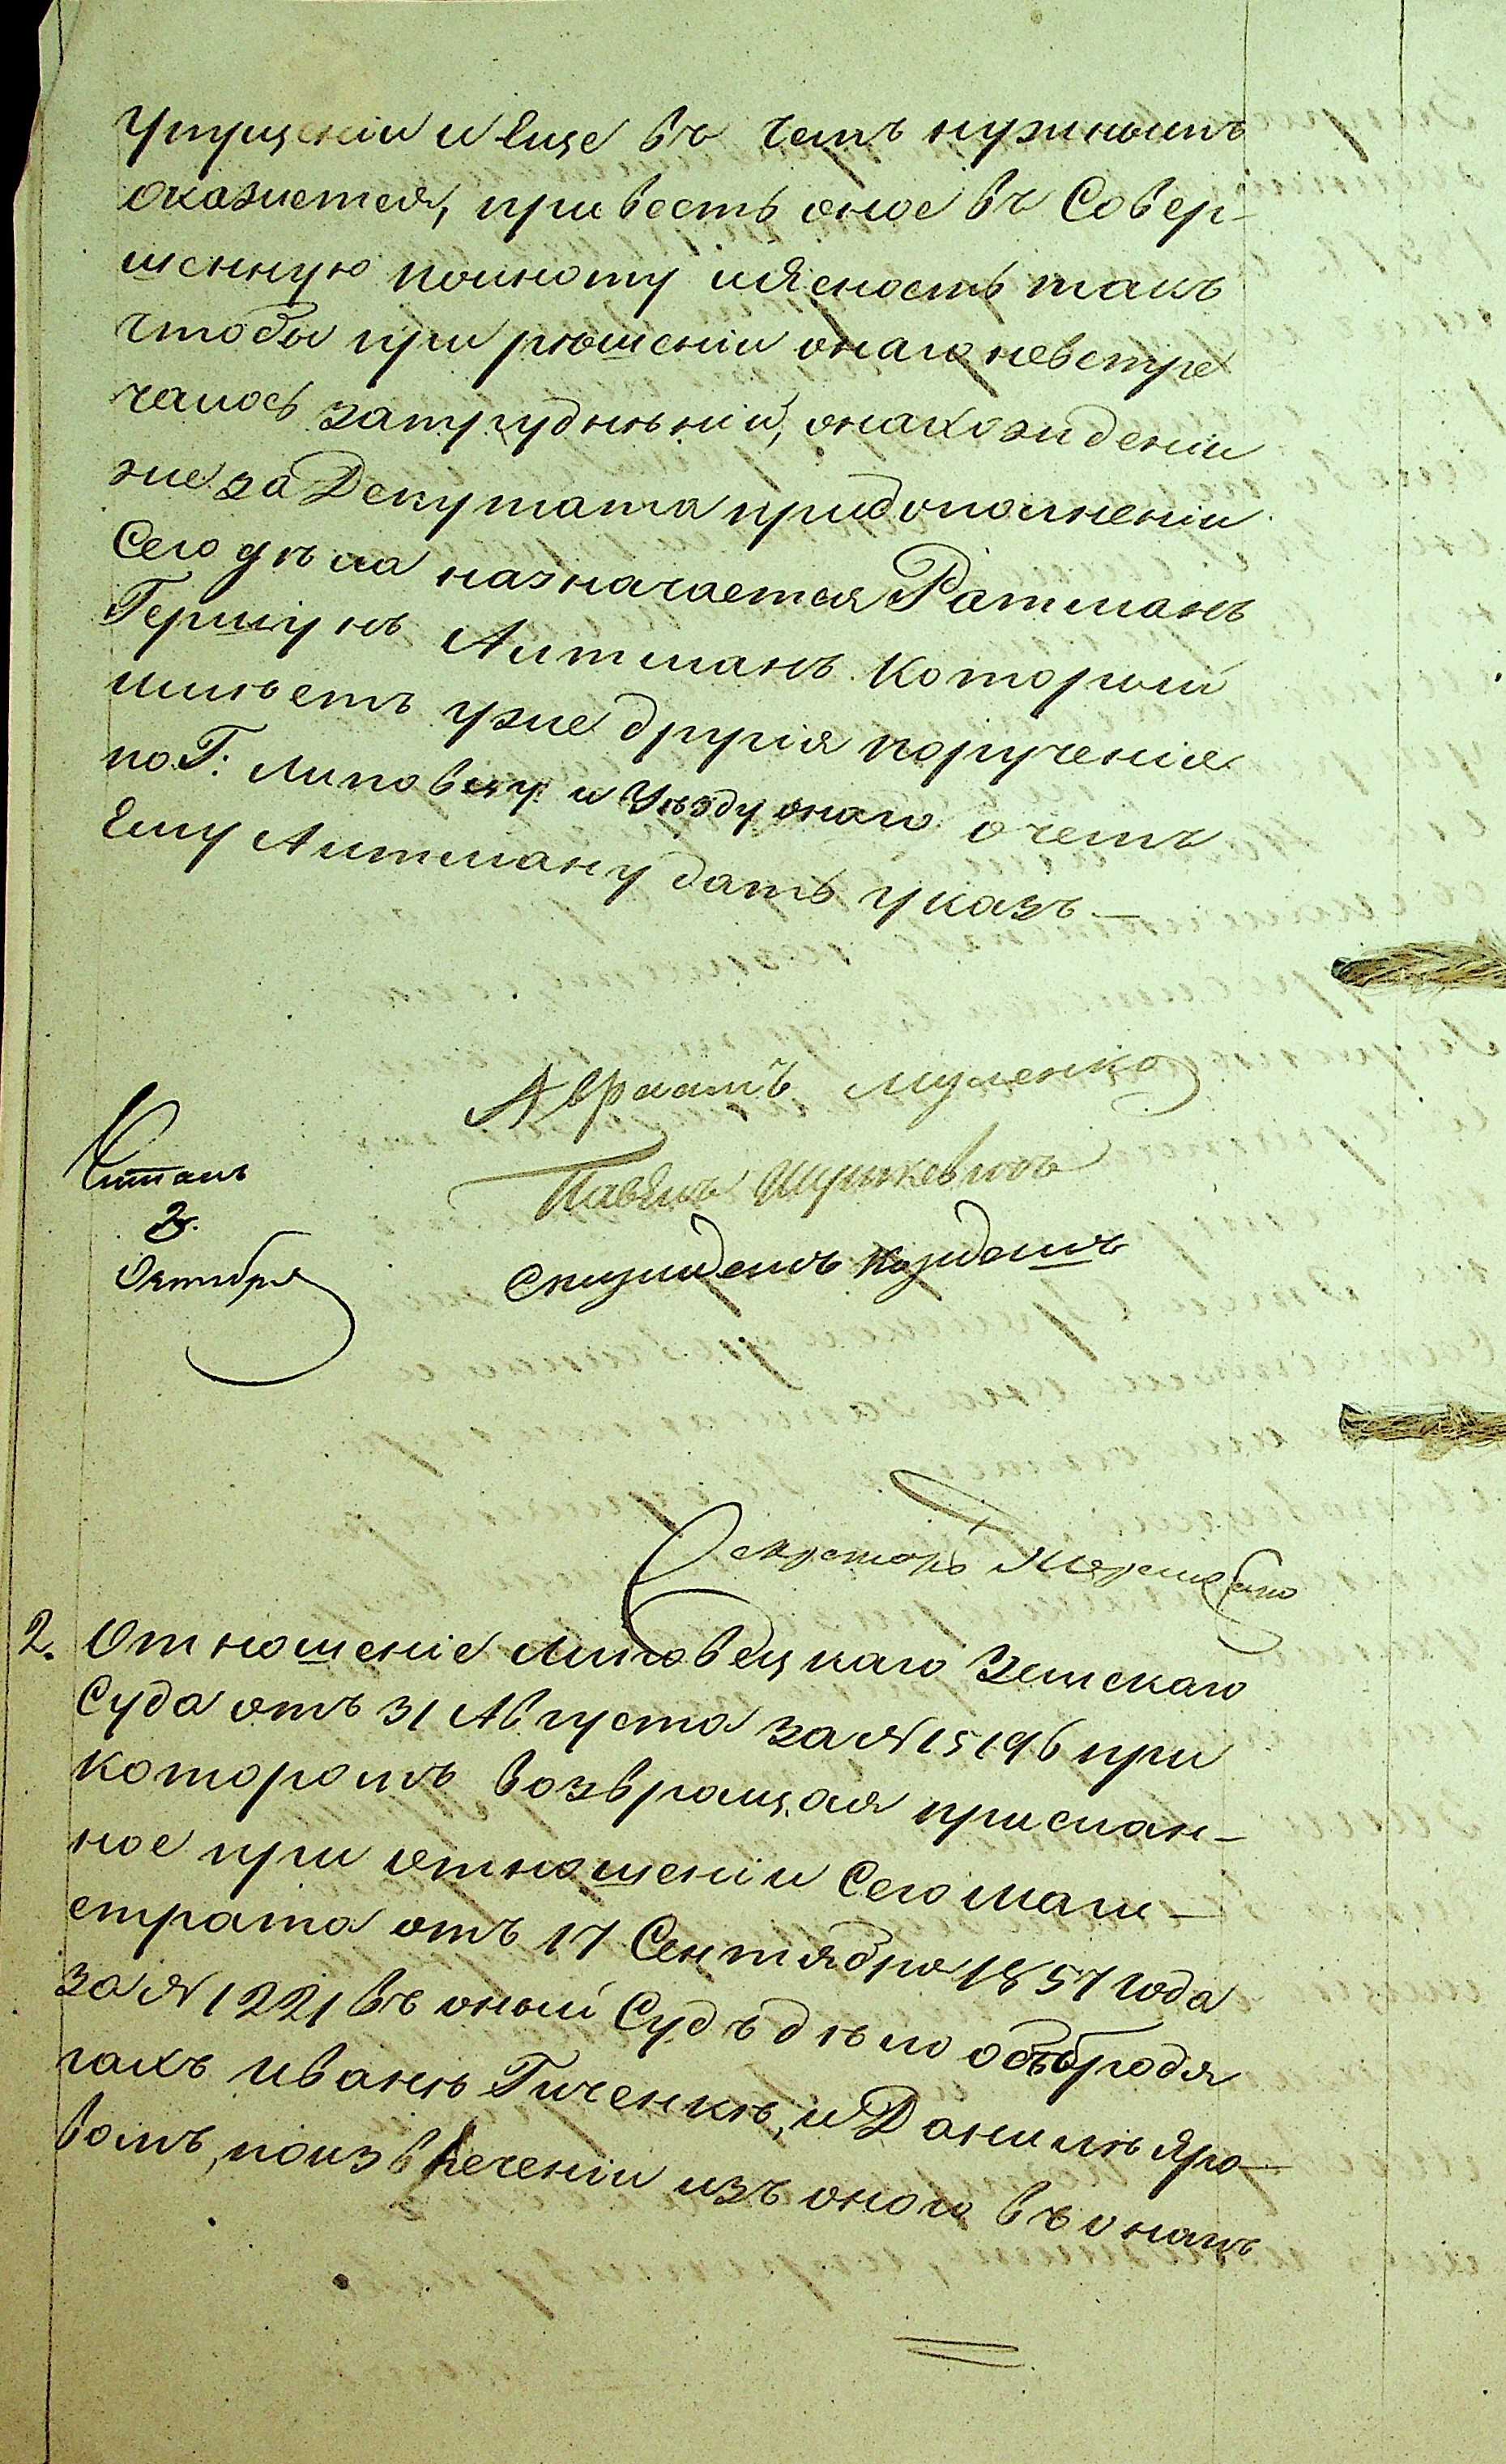 упущеніи и еще въ чемъ нужнымъ
окажется, привесть оное въ совер-
шенную полноту и ясность такъ
чтобы при рѣшеніи онаго невстре
чалось затрудненій, онахожденіи
же за Депутата придополненіи
Сего дѣла назначается Ратманъ
Гершунъ Литманъ который
имѣетъ уже другія порученія
по Г: Липовцу и Уѣзду онаго очемъ
Ему Литману дать указъ —
Авраамъ
Читалъ
2.
Октября
Секретарь
2. Отношеніе Липовецкаго Земскаго
Суда отъ 31 Августа за № 15196 при
которомъ возвращая прислан-
ное при отношеніи Сего Маги-
страта отъ 17 Сентября 1857 года
за № 1221 въ оный Судъ дѣло о бродя
гахъ Иванѣ Гиченкѣ, и Данилѣ Яро-
вомъ, поизвлеченіи изъ онаго въ ономъ